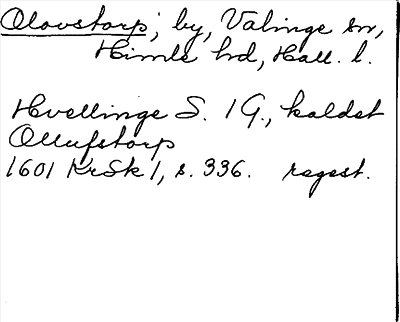 Olovstorp, by, Valinge sn,
Himle hd, Hall. l.
Hvellinge S. 1 G., kaldet
Ollufstorp
1601 KrSk 1, s. 336. regest.